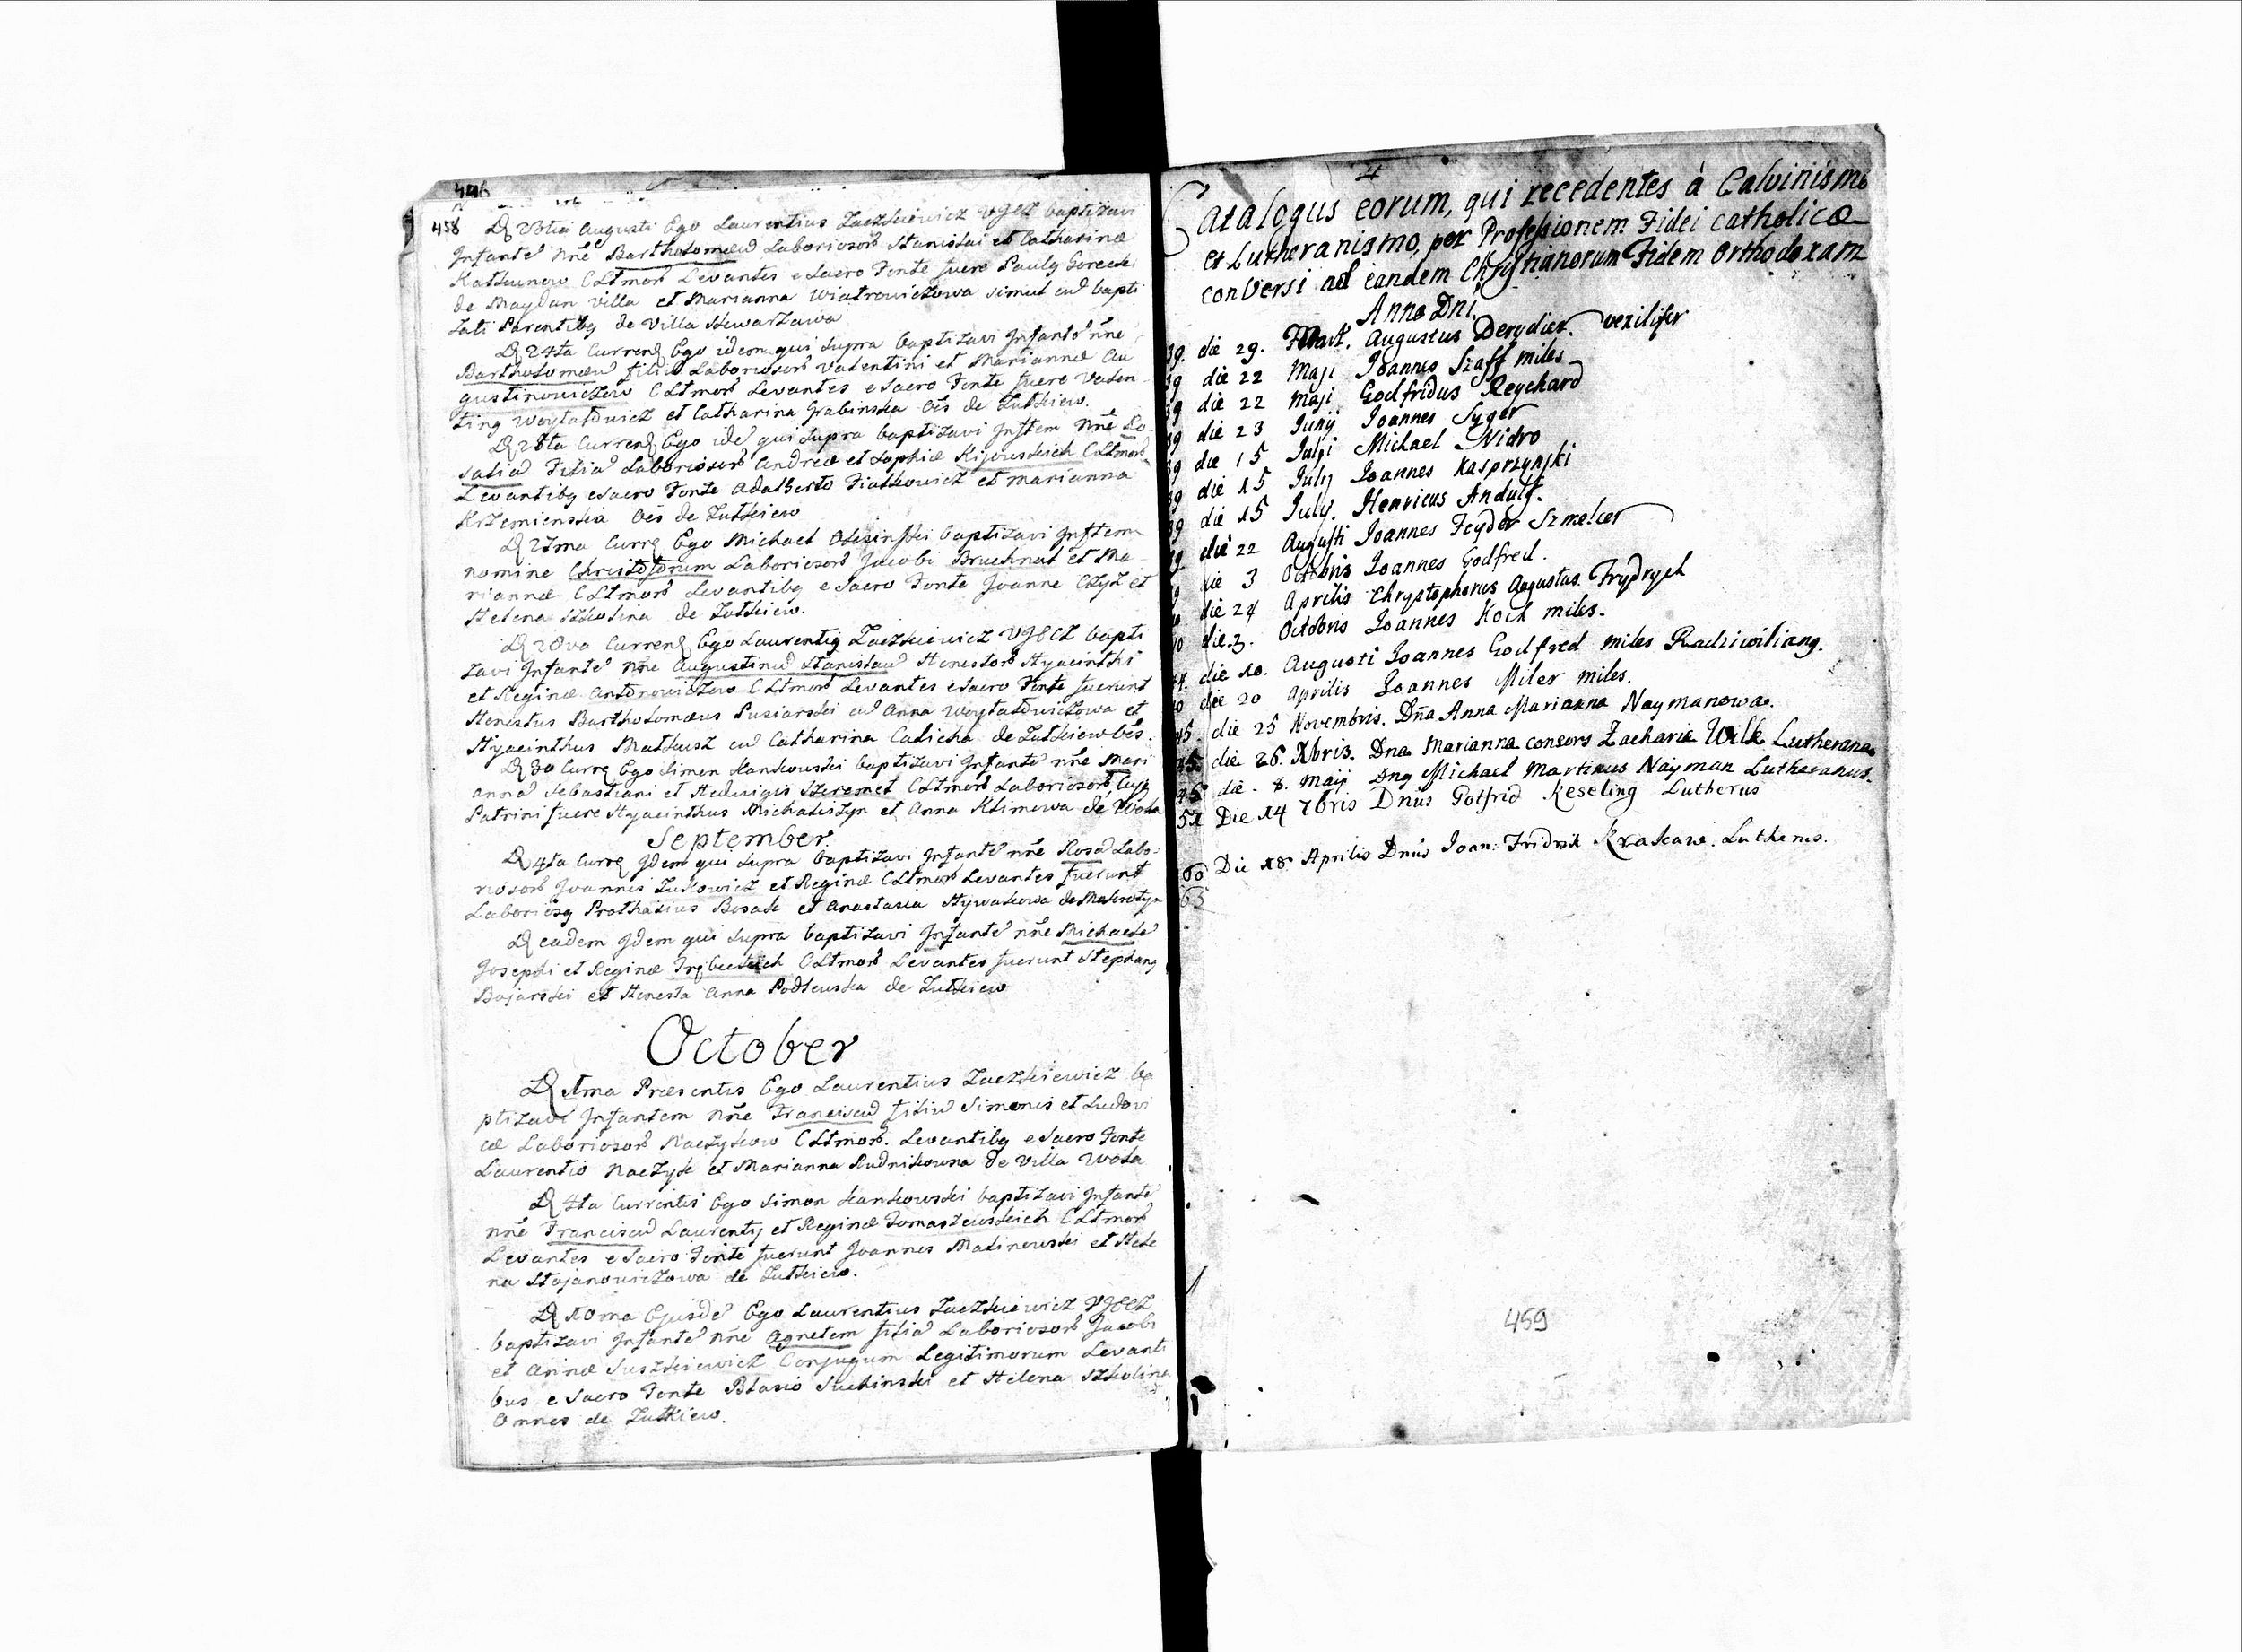 446
458 D 23tia Augusti Ego Laurentius Zaczkiewicz VJECZ baptizavi
Infante nne Bartholomæu Laboriosor Stanislai et Catharinæ
CLtmor Levantes e Sacro Fonte fuere Pauly Gorecki
de Maydan villa et Marianna Wiatrowiczowa simul cu bapti
zati Parentiby de Villa
D 24ta Curren Ego idem qui supra baptizavi Infante nne
Bartholomæu filiu Laboriosor Valentini et Mariannæ Au
gustinowiczow CLtmor Levantes e Sacro Fonte fuere Valen
ting Woytałowicz et Catharina Grabinska oes de Zulkiew.
D 26ta Curren Ego ide qui supra baptizavi Inftem nne Ro
salia Filia Laboriosor Andreæ et Sophiæ Kijowskich CLtmor
Levantiby e Sacro Fonte Adalberto Fiałkowicz et Marianna
Krzemienska oes de Zulkiew
D 27ma Curre Ego Michael Olesinski baptizavi Inftem
nomine Christoforum Laboriosor Jacobi Bruchnal et Ma
riannæ CLtmor Levantiby e Sacro Fonte Joanne Czyz et
Helena Szkolina de Zulkiew.
D 28va Curren Ego Laurentiy Zaczkiewicz VJECZ bapti
zavi Infante nne Augustinu Stanislau Honestor Hyacinthi
et Reginæ Antonowiczow CLtmor Levantes e Sacro Fonte fuerunt
Honestus Bartholomæus Pusiarski cu Anna Woytałowiczowa et
Hyacinthus Mathusz cu Catharina Calicha de Zulkiew oes.
D 30 Curre Ego Simon Kankowski baptizavi Infante nne Mari
anna Sebastiani et Hedvigis Szeremet CLtmor Laboriosor Cujy
Patrini fuere Hyacinthus Michaliszyn et Anna Klimowa de Wola
September
D 4ta Curre Idem qui supra baptizavi Infante nne Rosa Labo:
riosor Joannis Zukowicz et Reginæ CLtmor Levantes fuerunt
Laboriosy Prothasius Bosak et Anastasia Hywakowa de
D eadem Idem qui supra baptizavi Infante nne Michaele
Josephi et Reginæ CLtmor Levantes fuerunt Stephany
Bojarski et Honesta Anna Podlewska de Zulkiew
October
D 1ma Præsentis Ego Laurentius Zaczkiewicz ba
ptizavi Infantem nne Franciscu filiu Simonis et Ludovi
cæ Laboriosor Naczykow CLtmor. Levantiby e Sacro Fonte
Laurentio Naczyk et Marianna Rudnikowna de Villa Wola
D 4ta Currentis Ego Simon Kankowski baptizavi Infante
nne Franciscu Laurenty et Reginæ Tomaszewskich CLtmor
Levantes e Sacro Fonte fuerunt Joannes Malinowski et Hele
na Stojanowiczowa de Zulkiew.
D 10ma Ejusde Ego Laurentius Zaczkiewicz VJECZ
baptizavi Infante nne Agnetem filia Laboriosor Jacobi
et Annæ Suszkiewicz Conjugum Legitimorum Levanti
bus e Sacro Fonte Blasio Suchinski et Helena Szkolina
Omnes de Zulkiew.
Catalogus eorum, qui recedentes à Calvinismo
et Lutheranismo, per Professionem Fidei catholicæ
conversi ad eandem Chrystianorum Fidem Orthodoxam
Anno Dni.
39. die 29. Mart. Augustus Derydier. vexilifer
39 die 22 Maji Joannes Szaff miles
39 die 22 Maji Godfridus Reychard
39 die 23 Junij Joannes Syger
39 die 15 Julji Michael Nidro
39 die 15 July Joannes Kasprzynski
39 die 15 July. Henricus Andulf.
39 die 22 Augusti Joannes Feyder Szmelcer
9 die 3 Octobris Joannes Godfred.
die 24 Aprilis Chrystophorus Augustus Frydrych
40 die 3. Octobris Joannes Koch miles.
die 10. Augusti Joannes Godfred miles Radziwiliang.
die 20 Aprilis Joannes Miler miles.
45. die 25 Novembris. Dna Anna Marianna Naymanowa.
45 die 26. Xbris. Dna Marianna consors Zachariæ Wilk Lutherana
46 die. 8. Maij Dng Michael Martinus Nayman Lutheranus.
51 Die 14 7bris Dnus Gotfrid Keseling Lutherus
60 Die 18 Aprilis Dnus Joan: Fridrik Krakaw. Lutherus.
63
459